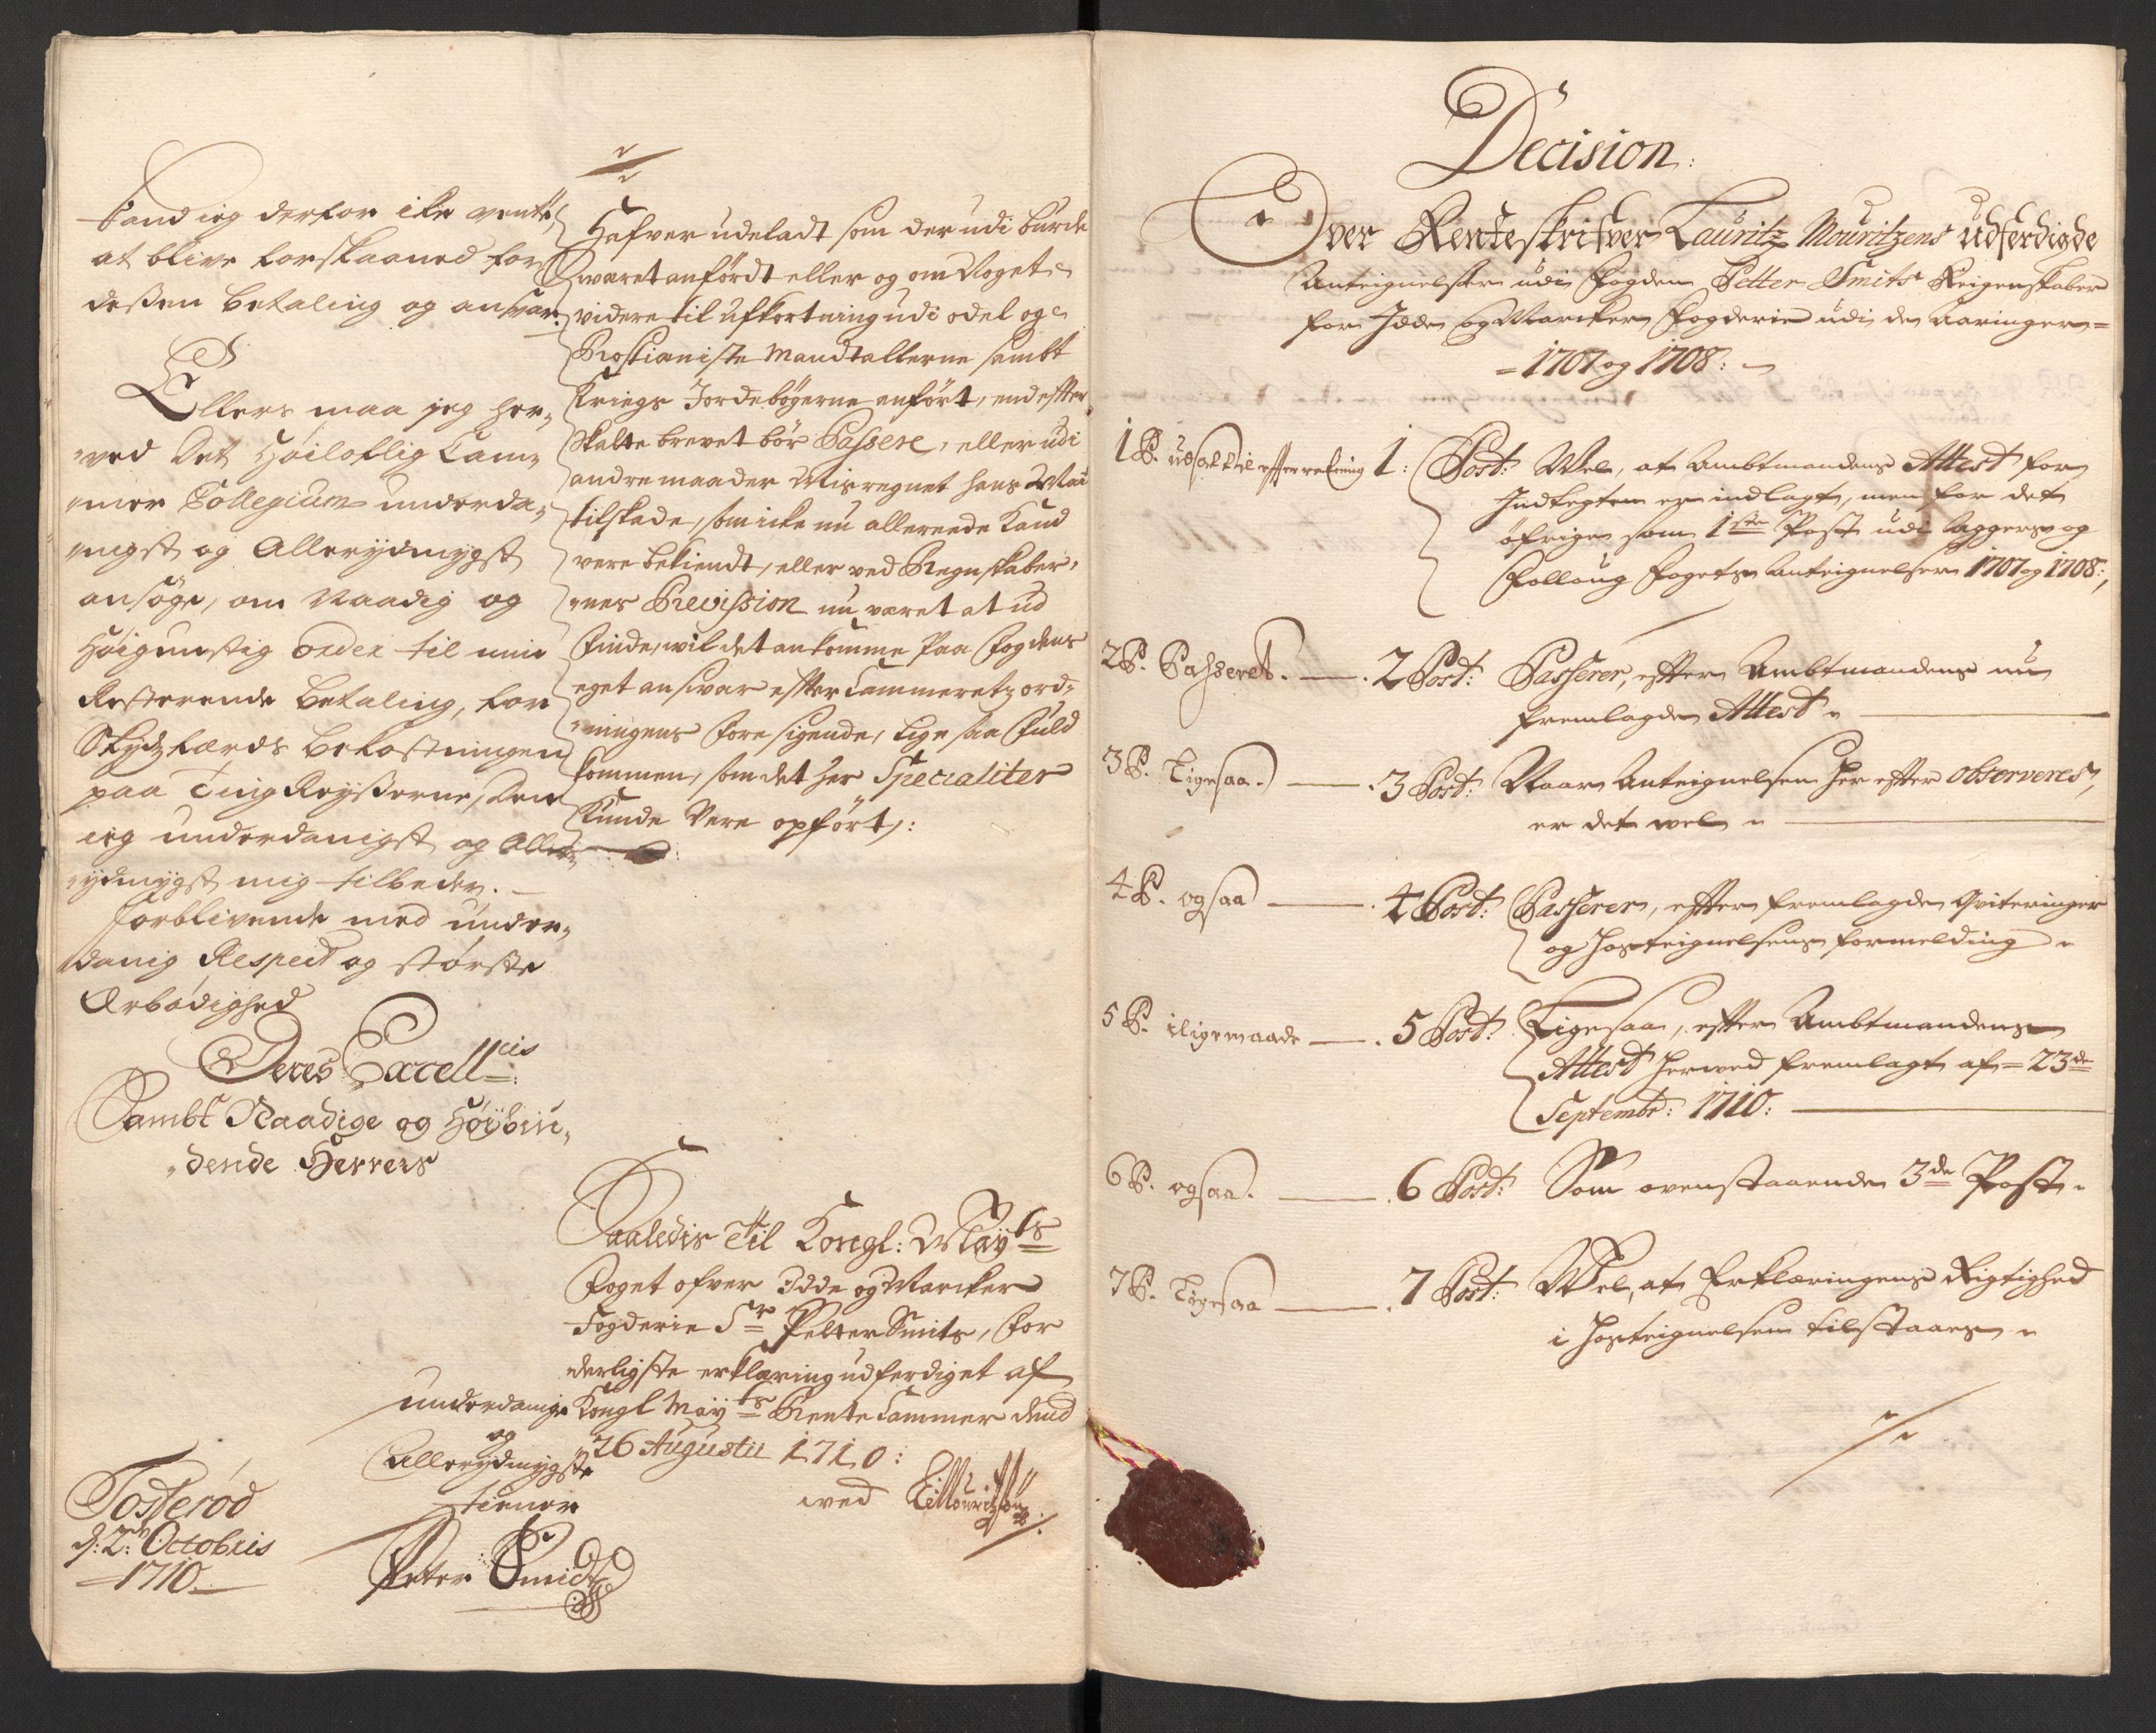 kand ieg derfor icke vente,
at blive forskaaned for
dessen betaling og ansvar.
Ellers maa jeg her„
„ved Det Høiloflig Cam„
„mer Collegium underda„
„nigst og Allerydmygst
ansøge, om Naadig og
Høigunstig order til min
Resterende betaling, for
Skydzfærds bekostningen
paa Ting Reysserne, den
ieg underdanigst og Aller„
„ydmygst mig tilbeder.
forblivende med under„
danig Respect og største
Ærbødighed
Deres Excell:cis
Sambt Naadige og Høÿbiu„
„dende Herrers
underdanige
og
Allerydmygste
tiener
Peter Smidt
Tosterød
d: 2: Octobris
1710
Hafver udeladt som der udi burde
været anførdt eller og om Noget
videre til afkortning udi odel og
Prostianiste Mandtallerne sambt
Kriegs Jordebøgerne anført, end efter
Skatte brevet bør Passere, eller udi
andre maader Misregnet hans May
til skade, som icke nu allereede kand
vere bekiendt, eller ved Regnskaber„
„nes Revission nu været at ud
finde, wil det ankomme paa Fogdens
eget answar efter Cammeretz ord„
„ningens foresigende, lige saa fuld
kommen, som det her Specialiter
kunde Vere opført:
Saaledis til Kongl: Mayts
Foget ofver Idde og Marcker
Fogderie Sr Petter Smits, for
derligste erklæring udferdiget af
Kongl Mayts Rente Cammer dend
26 Augustii 1710:
wed LMouritzøn
Decision:
Over Renteskrifver Lauritz Mouritzens udferdigde
Anteignelser udi Fogden Petter Smits Reigenskaber
for Idde og Marcker Fogderie udi de aaringer
1707 og 1708:
1 P. udsatt til effterretning 1: Post: Wel, at Ambtmandens Attest for
Indtegten er indlagt, men for det
øfrige som 1ste Post udi Aggers og
Folloug Fogets Anteignelser 1707 og 1708:
2 P. Passeret. 2 Post: Passerer, efter Ambtmandens nu
fremlagde Attest
3 P. Ligesaa. 3 Post: Naar Anteignelsen her efter observeres,
er det wel
4 P. ogsaa 4 Post: Passerer, efter fremlagde Qviteringer
og Hosteignelsens formelding
5 P. iligemaade 5 Post: Ligesaa, efter Ambtmandens
Attest herved fremlagt af 23de
Septembr: 1710:
6 P. ogsaa. 6 Post: Som ovenstaaende 3de Post
7 P. Ligesaa 7 Post: Wel, at Erklæringens Rigtighed
i Hosteignelsen tilstaaes